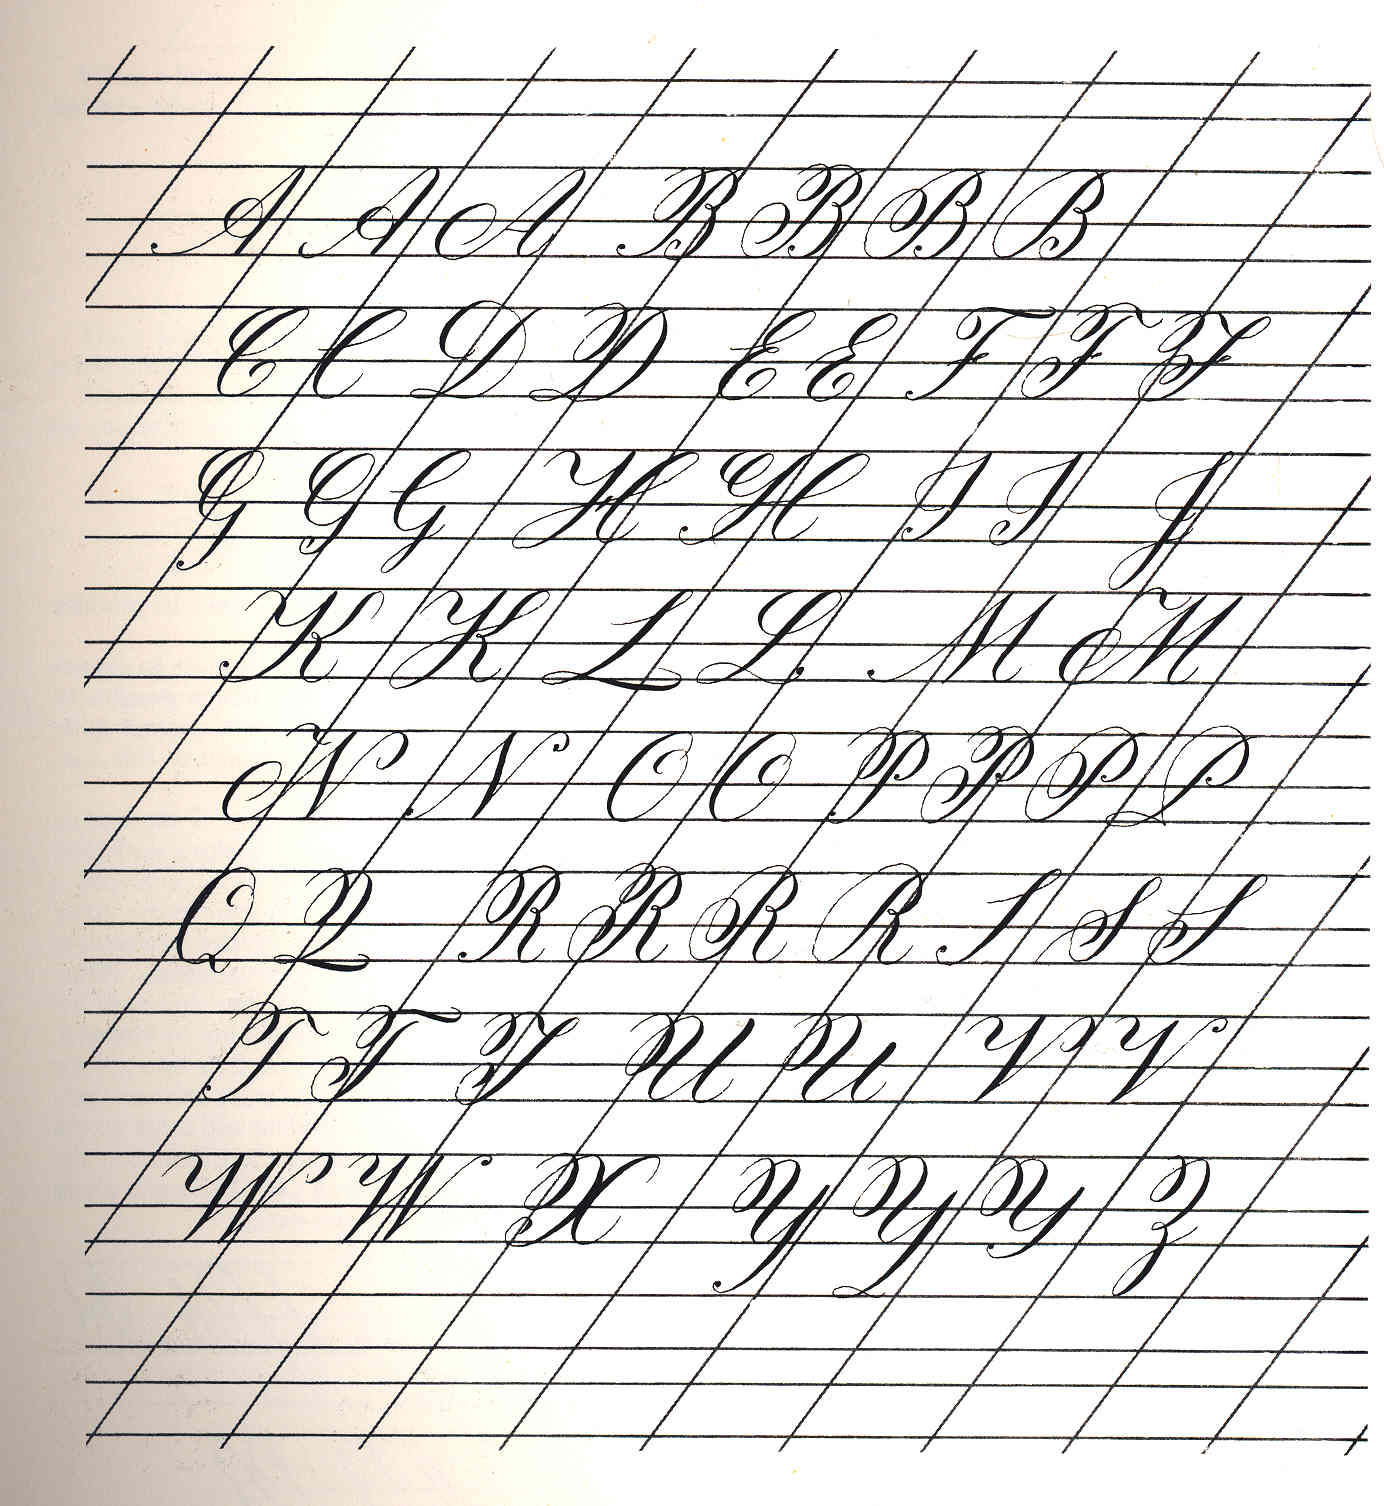 A A A B B B B
C C D D E E F F F
G G G H H I I J
K K L L M M
N N O O P P P P
Q Q R R R R S S S
T T T U U V V
W W X Y Y Y Z